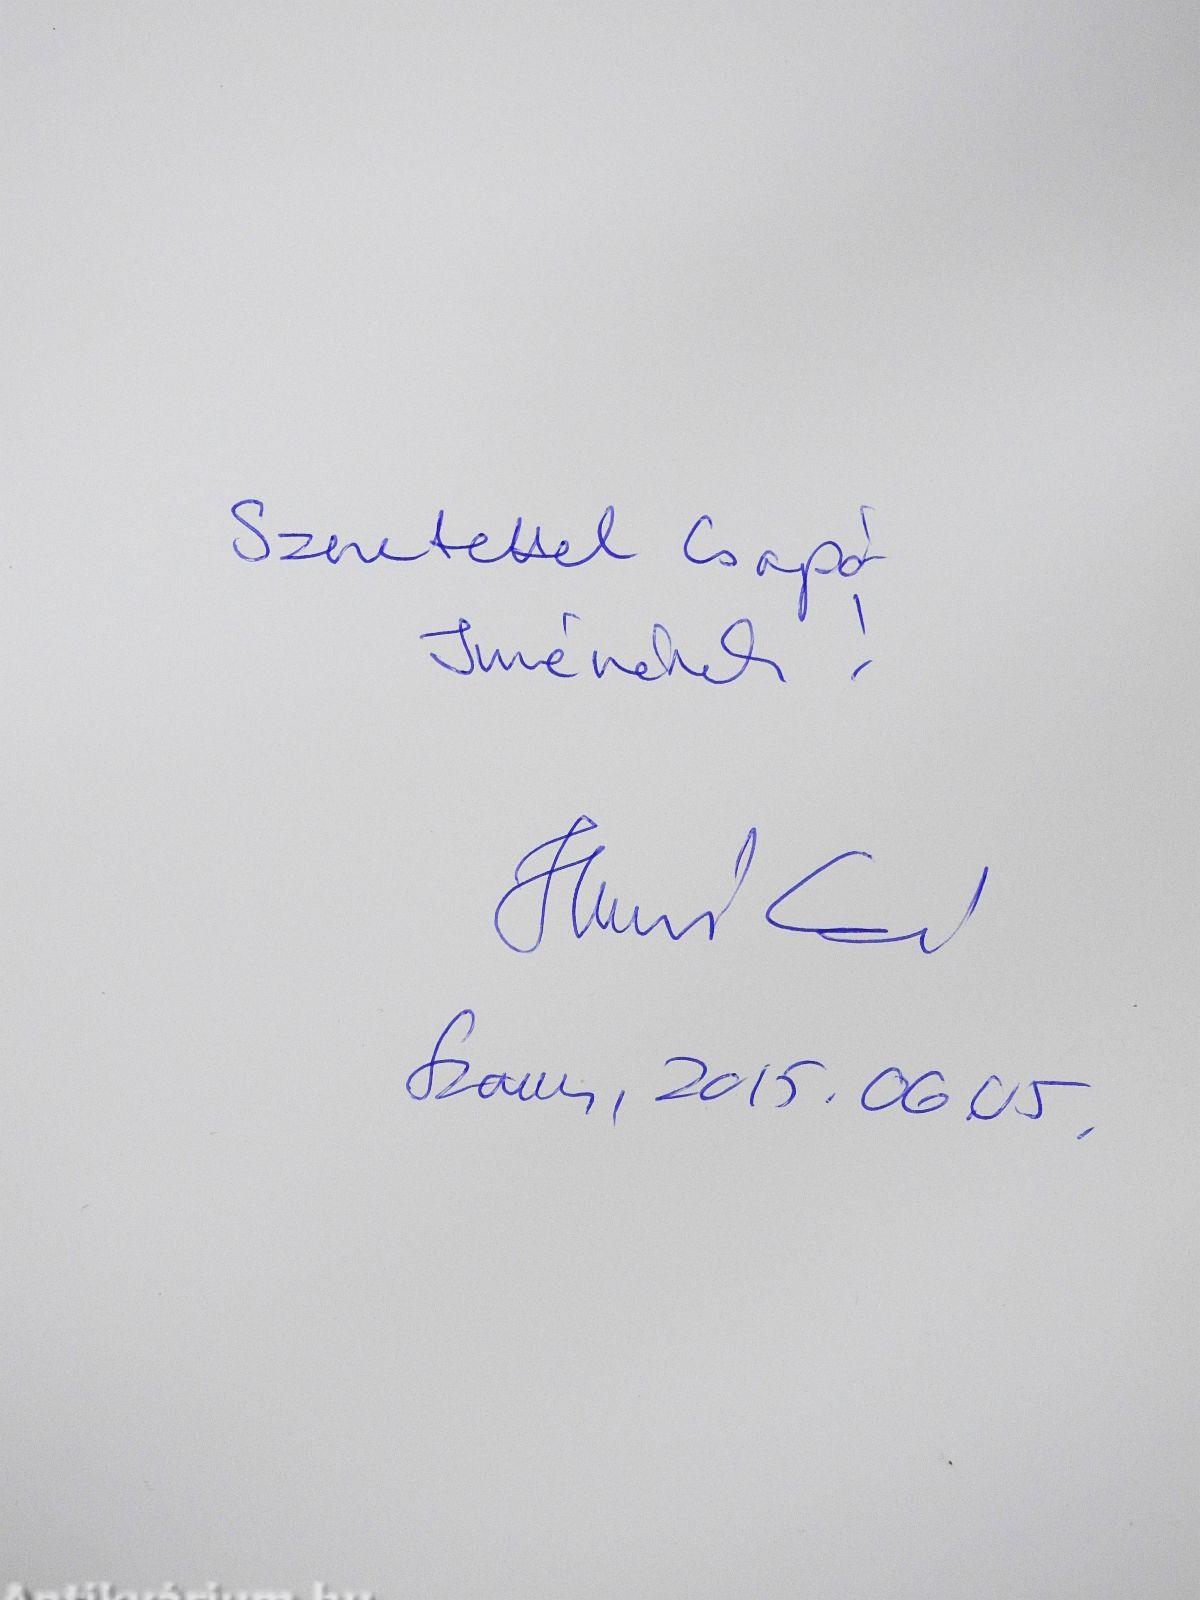 Szeretettel Csapó
Imrének !
2015. 06.05.
Antikvárium.hu